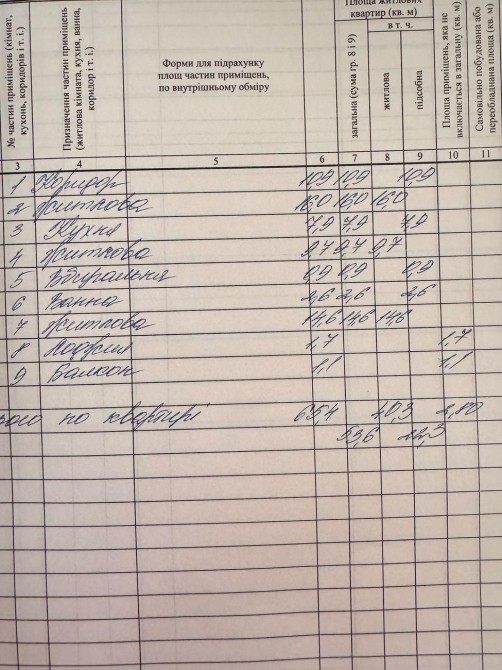 № частин приміщень (кімнат,
кухонь, коридорів і т. і.)
Призначення частин приміщень
(житлова кімната, кухня, ванна,
коридор і т. і.)
Форми для підрахунку
площ частин приміщень,
по внутрішньому обміру
Площа житлових
квартир (кв. м)
загальна (сума гр. 8 і 9)
в т. ч.
житлова
підсобна
Площа приміщень, яка не
включається в загальну (кв. м)
Самовільно побудована або
переобладнана площа (кв. м)
3 4 5 6 7 8 9 10 11
1 Коридор 10,9 10,9 10,9
2 Житлова 16,0 16,0 16,0
3 Кухня 7,9 7,9 7,9
4 Житлова 9,7 9,7 9,7
5 Вбиральня 0,9 0,9 0,9
6 Ванна 2,6 2,6 2,6
7 Житлова 14,6 14,6 14,6
8 Лоджия 1,7 1,7
9 Балкон 1,1 1,1
ього по квартирі 65,4 40,3 2,80
22,3